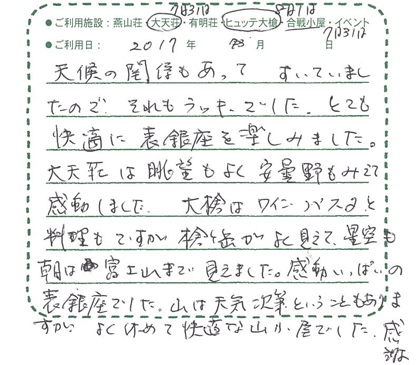 7月31日 8月1日
●ご利用施設：燕山荘・大天荘・有明荘・ヒュッテ大槍・合戦小屋・イベント
●ご利用日：2017年 月 7月31日
天候の関係もあって すいていまし
たので、それもラッキーでした。とても
快適に表銀座を楽しみました。
大天荘は眺望もよく安曇野もみえて
感動しました。 大槍はワイン・パスタと
料理もですが槍ヶ岳がよく見えて、星空も
朝は富士山まで見えました。感動いっぱいの
表銀座でした。山は天気次第ということもありま
すが よく休めて快適な山小屋でした。感
謝